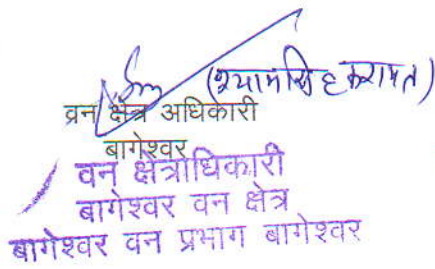 (श्यामसिंह करायत)
वन क्षेत्र अधिकारी
बागेश्वर
वन क्षेत्राधिकारी
बागेश्वर वन क्षेत्र
बागेश्वर वन प्रभाग बागेश्वर